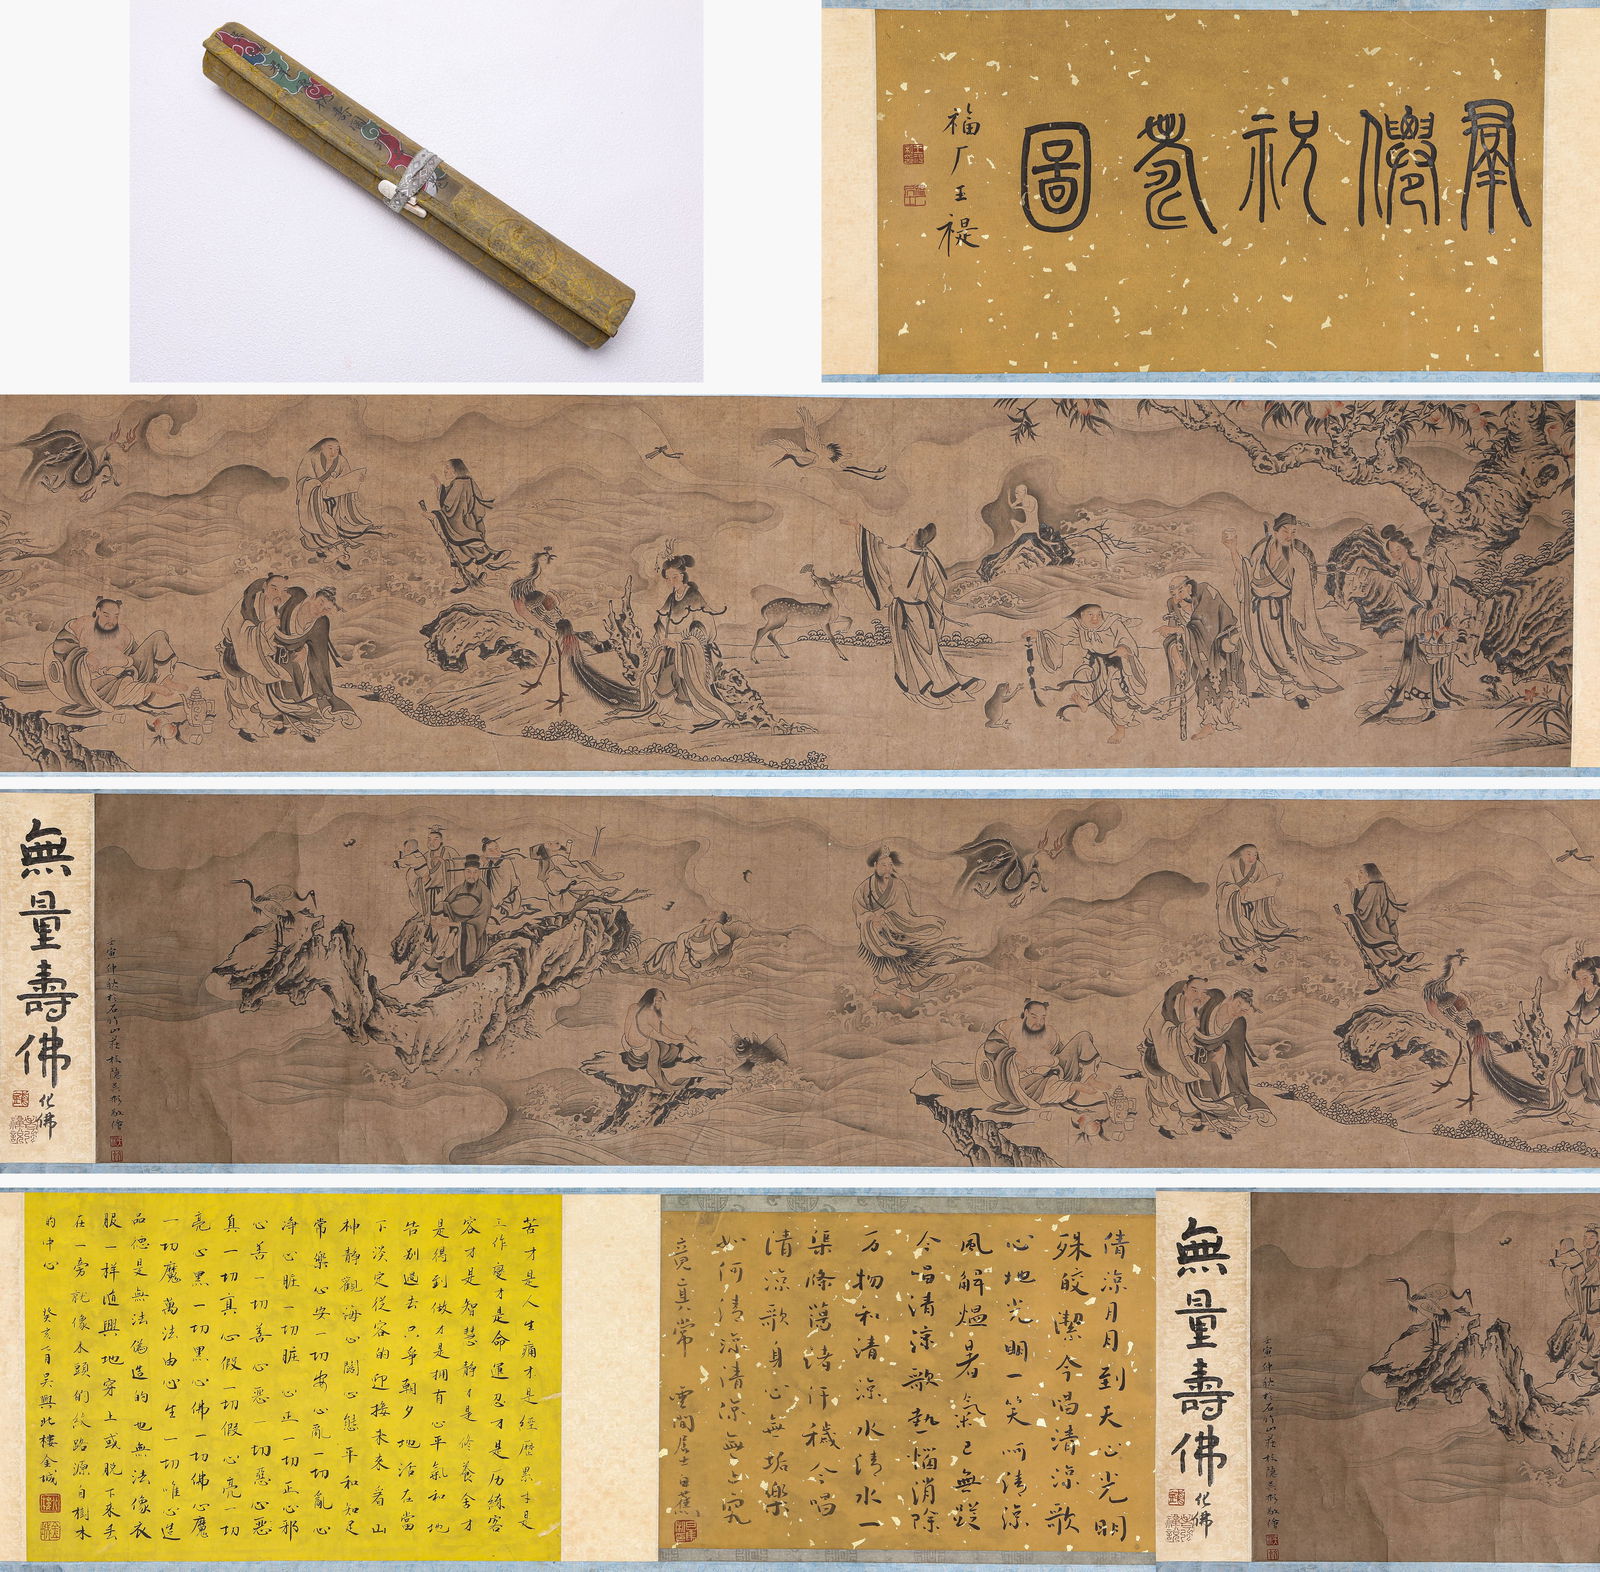 羣僊祝壽圖
福厂王禔
無量壽佛
化佛
壬寅仲秋於石竹山莊
苦才是人生痛才是經歷累才是
工作變才是命運忍才是历練容
容才是智慧靜才是修養舍才
是得到做才是拥有心平氣和地
告别過去只爭朝夕地活在當
下淡定從容的迎接未来看山
神靜觀海心闊心態平和知足
常樂心安一切安心亂一切亂心
净心脏一切脏心正一切正心邪
心善一切善心惡一切惡心惡
真一切真心假一切假心亮一切
亮心黑一切黑心佛一切佛心魔
一切魔萬法由心生一切唯心造
品德是無法偽造的也無法像衣
服一样随興地穿上或脱下来丢
在一旁就像木頭的纹路源自樹木
的中心
癸亥七月吴興北樓金城
清凉月月到天心光明
殊皎潔今唱清涼歌
心地光明一笑呵清涼
風解愠暑氣已無踪
今唱清涼歌熱惱消除
万物和清涼水清水一
渠滌蕩諸汙穢今唱
清涼歌身心無垢樂
如何清涼清涼無上究
竟真常
雲間居士白蕉
無量壽佛
化佛
壬寅仲秋於石竹山莊